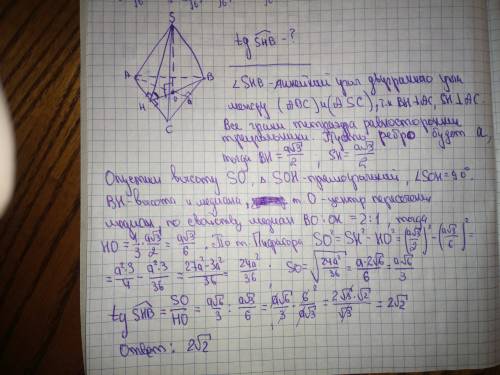 S
A
B
H
O
C
tg SHB - ?
∠SHB - линейный угол двугранного угла
между (ABC) и (ASC), т.к BH⊥AC, SH⊥AC.
Все грани тетраэдра равносторонние
треугольники. Пусть ребро будет a,
тогда BH = a√3/2, SH = a√3/2
Опустим высоту SO, △ SOH - прямоугольный, ∠SOH = 90°
BH - высота и медиана, т. O - центр пересечения
медиан по свойству медиан BO:OH = 2:1, тогда
HO = 1/3 · a√3/2 = a√3/6. По т. Пифагора SO² = SH² - HO² = (a√3/2)² - (a√3/6)² =
= a²·3/4 - a²·3/36 = 27a² - 3a²/36 = 24a²/36; SO = √24a²/36 = a·2√6/6 = a√6/3
tg SHB = SO/HO = a√6/3 : a√3/6 = a√6/3 · 6/a√3 = 2√3·√2/√3 = 2√2
Ответ: 2√2